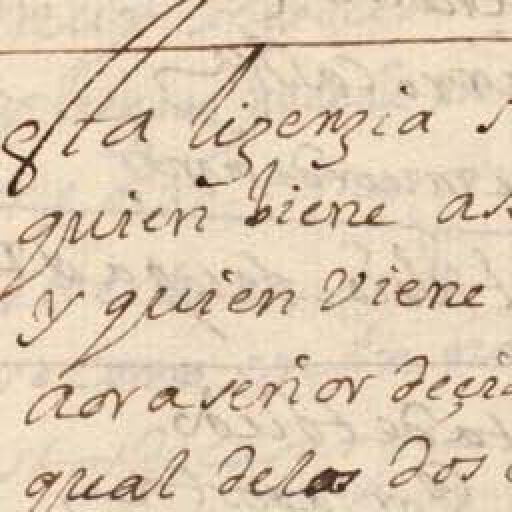 esta lizenzia s
quien biene as
y quien viene
aora señor deçi
qual delos dos